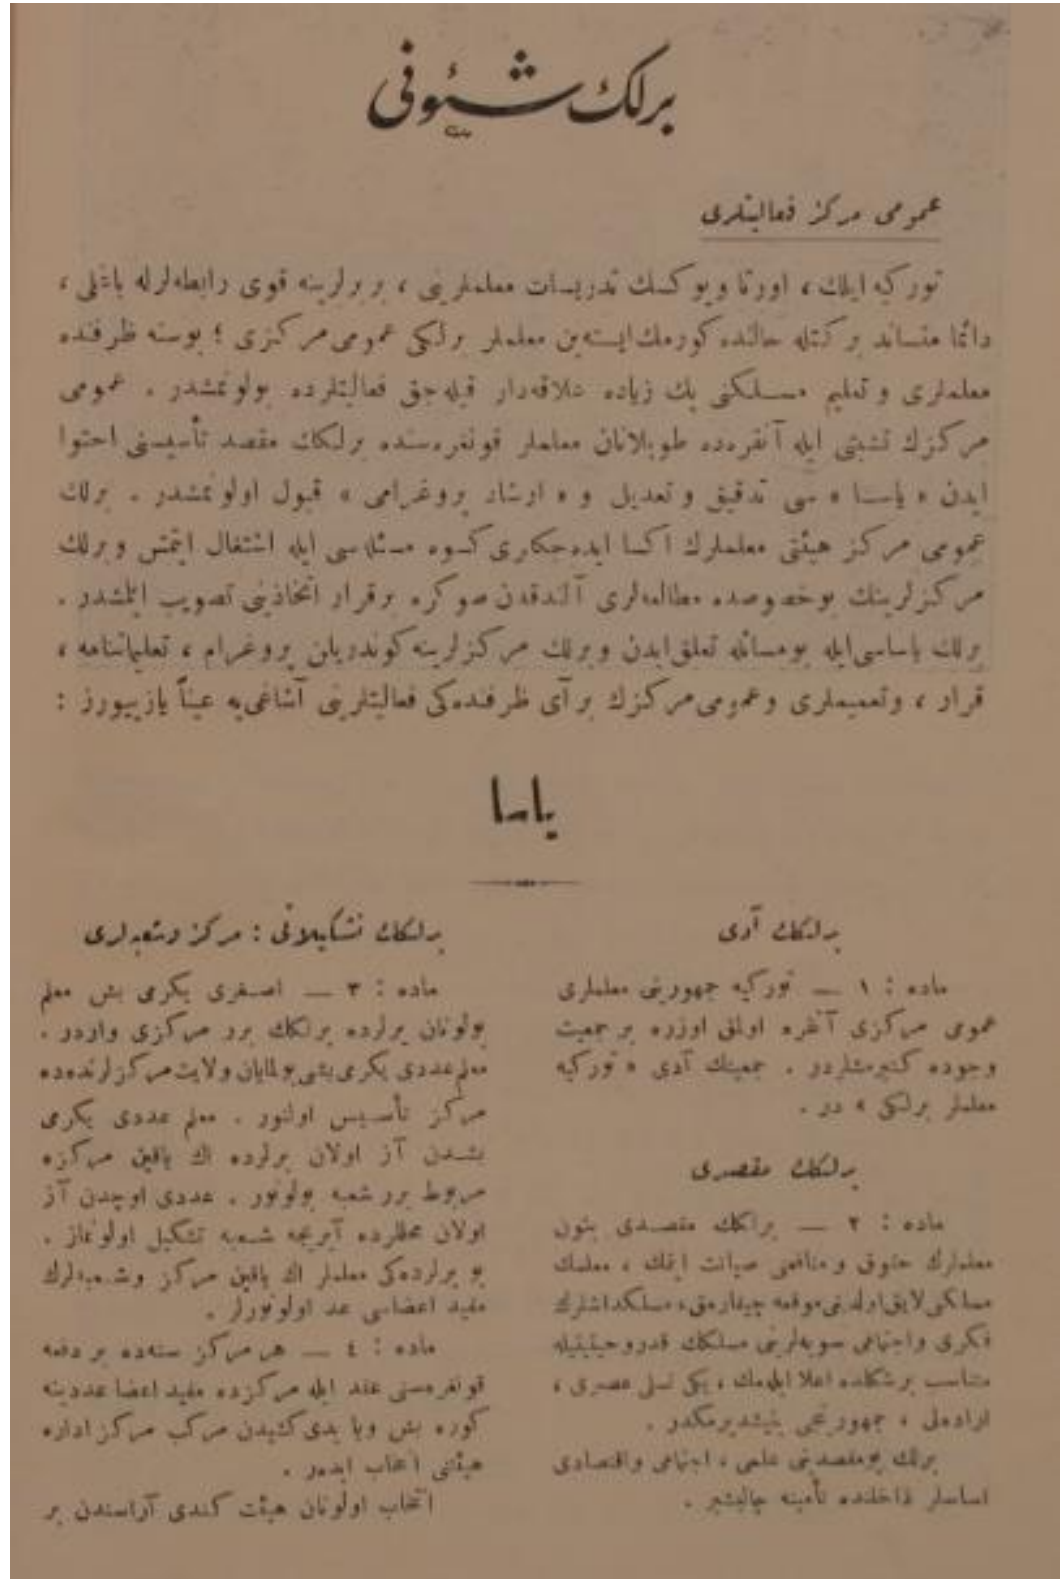 برلك شئونی
عمومی مركز فعالیتلری
توركیه ایلك ، اورتا ویوكسك تدریسات معلملرینی ، بربرلرینه قوی رابطه‌لرله باغلی ،
دائما متساند بر كتله حالنده كورمك ایسته‌ین معلملر برلكی عمومی مركزی ؛ بوسنه ظرفنده
معلملری و تعلیم مسلكنی پك زیاده علاقه‌دار قیله‌جق فعالیتلرده بولونمشدر . عمومی
مركزك تشبثی ایله آنقره‌ده طوپلانان معلملر قونغره‌سنده برلكك مقصد تأسیسنی احتوا
ایدن « یاسا » سی تدقیق و تعدیل و « ارشاد پروغرامی » قبول اولونمشدر . برلك
عمومی مركز هیئتی معلملرك اكسا ایده‌جكلری كسوه مسئله‌سی ایله اشتغال ایتمش وبرلك
مركزلرینك بوخصوصده مطالعه‌لری آلندقدن صوكره برقرار اتخاذینی تصویب ایتمشدر .
برلك یاساسی ایله بومسائله تعلق ایدن وبرلك مركزلرینه كوندریلن پروغرام ، تعلیماتنامه ،
قرار ، وتعمیملری وعمومی مركزك برآی ظرفنده‌كی فعالیتلرینی آشاغی‌یه عیناً یازییورز :
یاسا
برلكك آدی
ماده : ١ — توركیه جمهوریتی معلملری
عمومی مركزی آنقره اولمق اوزره بر جمعیت
وجوده كتیرمشلردر . جمعیتك آدی « توركیه
معلملر برلكی » در .
برلكك مقصدی
ماده : ٢ — برلكك مقصدی بتون
معلملرك حقوق و منافعی صیانت ایتمك ، معلمك
مسلكی لایق اولدیغی موقعه چیقارمق ، مسلكداشلرك
فكری واجتماعی سویه‌لرینی مسلكك قدر وحیثیتیله
متناسب برشكلده اعلا ایله‌مك ، یكی نسلی عصری ،
اراده‌لی ، جمهوریتجی یتیشدیرمكدر .
برلك بومقصدینی علمی ، اجتماعی واقتصادی
اساسلر داخلنده تأمینه چالیشیر .
برلكك تشكیلاتی : مركز وشعبه‌لری
ماده : ٣ — اصغری یكرمی بش معلم
بولونان یرلرده برلكك برر مركزی واردر .
معلم عددی یكرمی بشی بولمایان ولایت مركزلرنده‌ده
مركز تأسیس اولنور . معلم عددی یكرمی
بشدن آز اولان یرلرده اك یاقین مركزه
مربوط برر شعبه بولونور . عددی اوچدن آز
اولان محللرده آیریجه شعبه تشكیل اولونماز .
بو یرلرده‌كی معلملر اك یاقین مركز وشعبه‌لرك
مقید اعضاسی عد اولونورلر .
ماده : ٤ — هر مركز سنه‌ده بر دفعه
قونغره‌سنی عقد ایله مركزده مقید اعضا عددینه
كوره بش ویا یدی كشیدن مركب مركز اداره
هیئتنی انتخاب ایده‌ر .
انتخاب اولونان هیئت كندی آراسندن بر